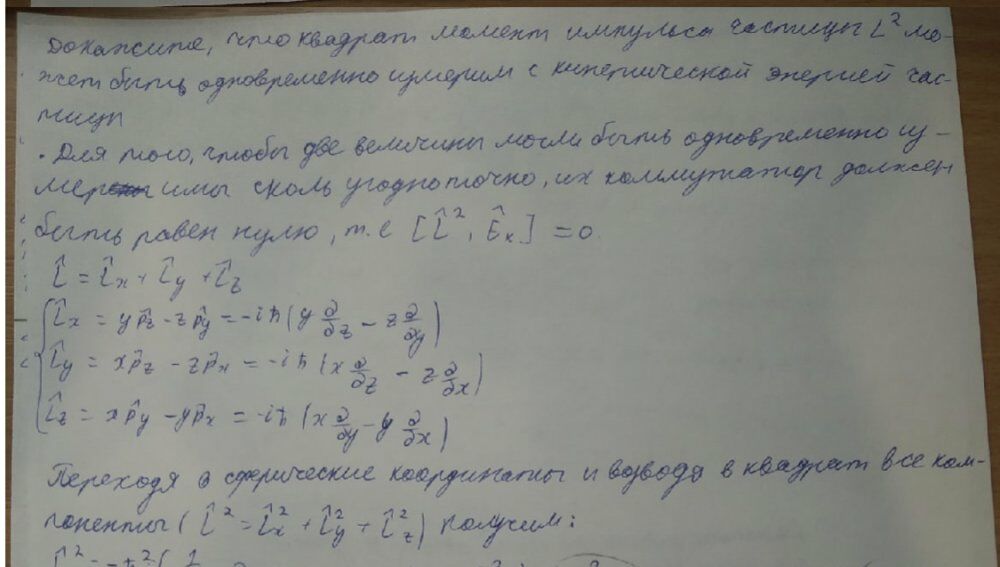 Докажите, что квадрат момент импульса частицы L² мо-
жет быть одновременно измерим с кинетической энергией час-
тицы
· Для того, чтобы две величины могли быть одновременно из-
меримы сколь угодно точно, их коммутатор должен
быть равен нулю, т.е [L̂², Êₖ] = 0.
L̂ = L̂x + L̂y + L̂z
L̂x = yp̂z - zp̂y = -iħ(y ∂/∂z - z ∂/∂y)
L̂y = xp̂z - zp̂x = -iħ(x ∂/∂z - z ∂/∂x)
L̂z = xp̂y - yp̂x = -iħ(x ∂/∂y - y ∂/∂x)
Переходя в сферические координаты и возводя в квадрат все ком-
поненты (L̂² = L̂x² + L̂y² + L̂z²) получим: